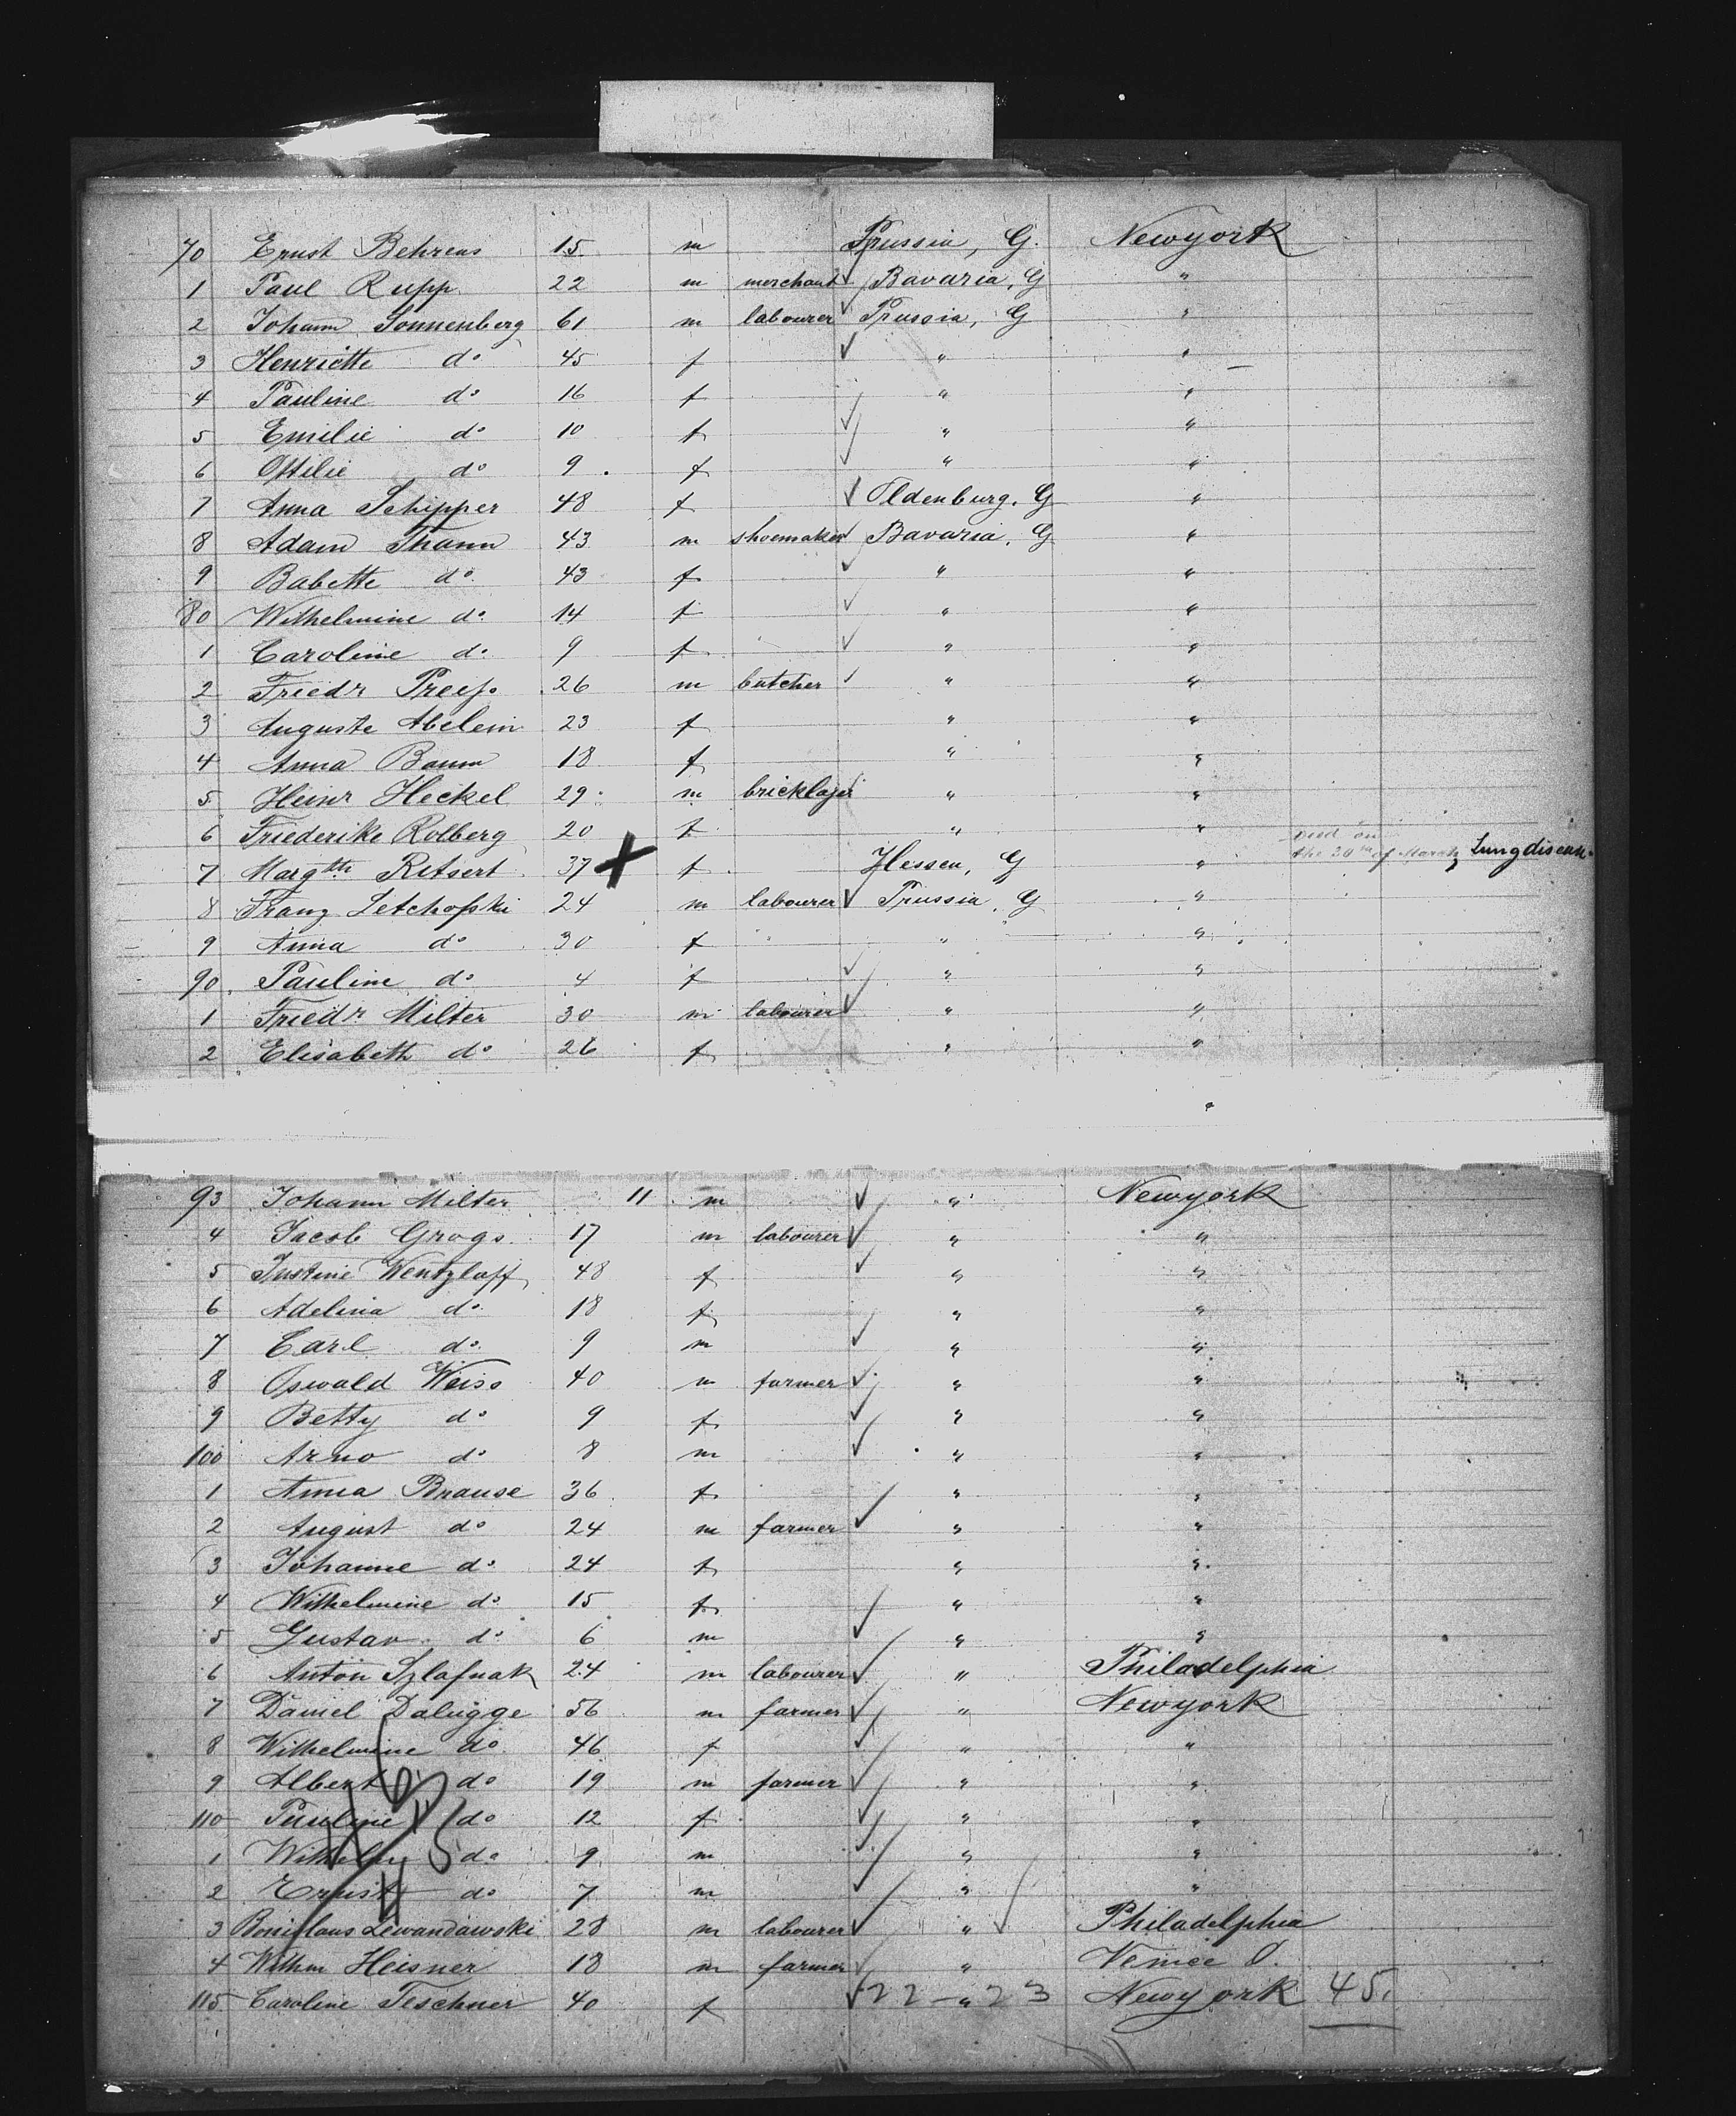 70 Ernst Behrens 15. m Prussia, G. Newyork
1 Paul Rupp 22 m merchant Bavaria, G "
2 Johann Sonnenberg 61 m labourer Prussia, G "
3 Henriette do 45 f " "
4 Pauline do 16 f " "
5 Emilie do 10 f " "
6 Ottilie do 9 f " "
7 Anna Schipper 48 f Oldenburg, G "
8 Adam Thann 43 m shoemaker Bavaria, G "
9 Babette do 43 f " "
80 Wilhelmine do 14 f " "
1 Caroline do 9 f " "
2 Friedr Preess 26 m butcher " "
3 Auguste Abelein 23 f " "
4 Anna Baum 18 f " "
5 Heinr Heckel 29 m bricklayer " "
6 Friederike Rolberg 20 f " "
7 Margth Ritsert 37 X f Hessen, G " Died on the 20th of March, Lung disease.
8 Franz Letchofski 24 m labourer Prussia, G "
9 Anna do 30 f " "
90 Pauline do 4 f " "
1 Friedr Milter 30 m labourer " "
2 Elisabeth do 26 f " "
93 Johann Milter 11 m " Newyork
4 Jacob Grogs 17 m labourer " "
5 Justine Wentzlaff 48 f " "
6 Adelina do 18 f " "
7 Carl do 9 m " "
8 Oswald Weiss 40 m farmer " "
9 Betty do 9 f " "
100 Arno do 8 m " "
1 Anna Brause 36 f " "
2 August do 24 m farmer " "
3 Johanne do 24 f " "
4 Wilhelmine do 15 f " "
5 Gustav do 6 m " "
6 Anton Szlafnak 24 m labourer " Philadelphia
7 Daniel Dalügge 56 m farmer " Newyork
8 Wilhelmine do 46 f " "
9 Albert do 19 m farmer " "
110 Pauline do 12 f " "
1 Wilhelm do 9 m " "
2 Ernst do 7 m " "
3 Bonislaus Lewandawski 28 m labourer " Philadelphia
4 Wilhm Heisner 18 m farmer " Venice O.
115 Caroline Teschner 40 f 22 - " 23 Newyork 45.